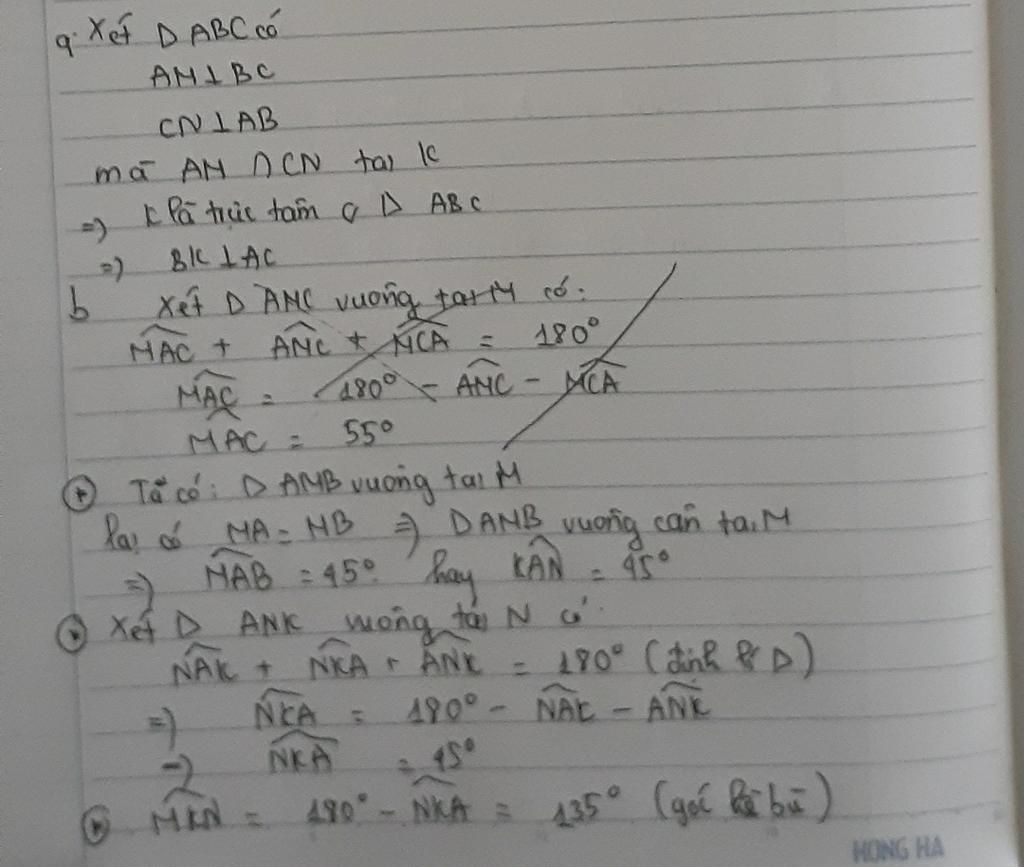 a. Xét Δ ABC có
AM ⊥ BC
CN ⊥ AB
mà AM ∩ CN tại K
=> K là trực tâm Δ ABC
=> BK ⊥ AC
b Xét Δ AMC vuông tại M có:
MAC + AMC + MCA = 180°
MAC = 180° - AMC - MCA
MAC = 55°
Ta có: Δ AMB vuông tại M
lại có MA = MB => Δ AMB vuông cân tại M
=> MAB = 45° hay KAN = 45°
Xét Δ ANK vuông tại N có
NAK + NKA + ANK = 180° (định lý Δ)
=> NKA = 180° - NAK - ANK
=> NKA = 45°
MKN = 180° - NKA = 135° (góc kề bù)
HONG HA